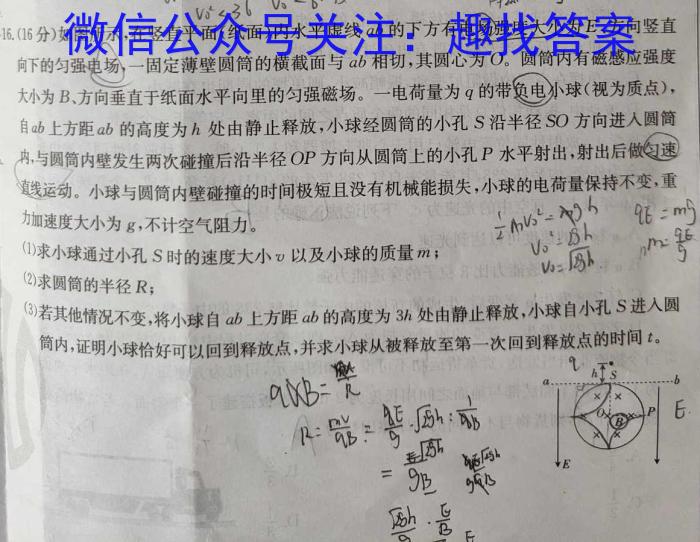 微信公众号关注：趣找答案
16.(16分)如图所示,在竖直平面(纸面)内水平虚线ab的下方有电场强度大小为E、方向竖直
向下的匀强电场,一固定薄壁圆筒的横截面与ab相切,其圆心为O。圆筒内有磁感应强度
大小为B、方向垂直于纸面水平向里的匀强磁场。一电荷量为q的带负电小球(视为质点),
自ab上方距ab的高度为h处由静止释放,小球经圆筒的小孔S沿半径SO方向进入圆筒
内,与圆筒内壁发生两次碰撞后沿半径OP方向从圆筒上的小孔P水平射出,射出后做匀速
直线运动。小球与圆筒内壁碰撞的时间极短且没有机械能损失,小球的电荷量保持不变,重
力加速度大小为g,不计空气阻力。
(1)求小球通过小孔S时的速度大小v以及小球的质量m;
(2)求圆筒的半径R;
(3)若其他情况不变,将小球自ab上方距ab的高度为3h处由静止释放,小球自小孔S进入圆
筒内,证明小球恰好可以回到释放点,并求小球从被释放至第一次回到释放点的时间t。
qE=mg
m=qE/g
a
h
S
b
O
B
P
E
E